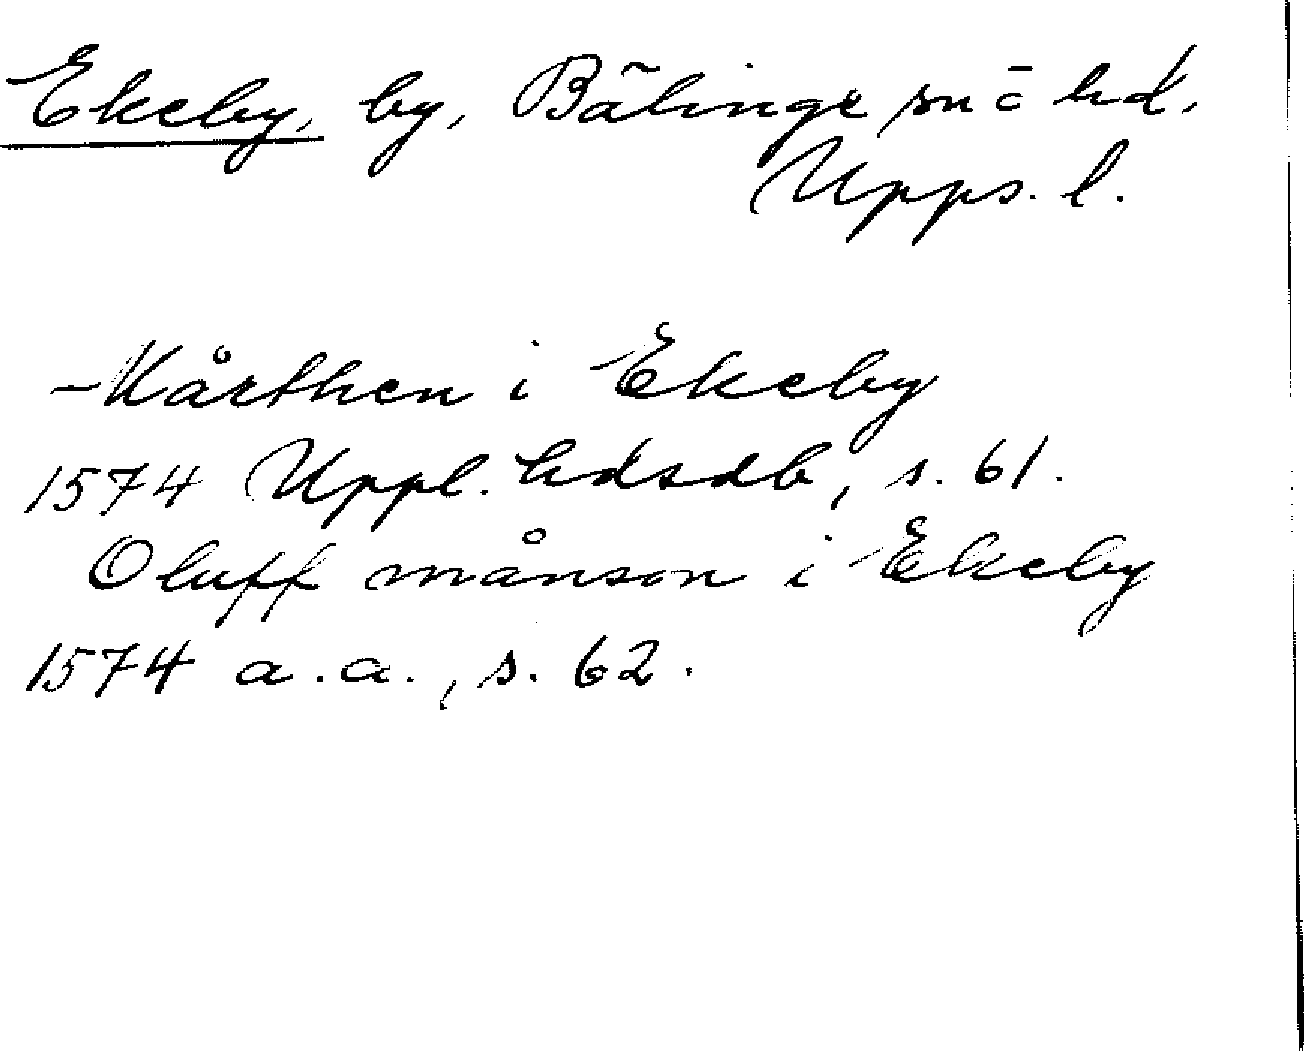 Ekeby, by, Bälinge sn o hd,
Upps. l.
Mårthen i Ekeby
1574 Uppl. hdsdb, s. 61.
Oluff månson i Ekeby
1574 a.a., s. 62.